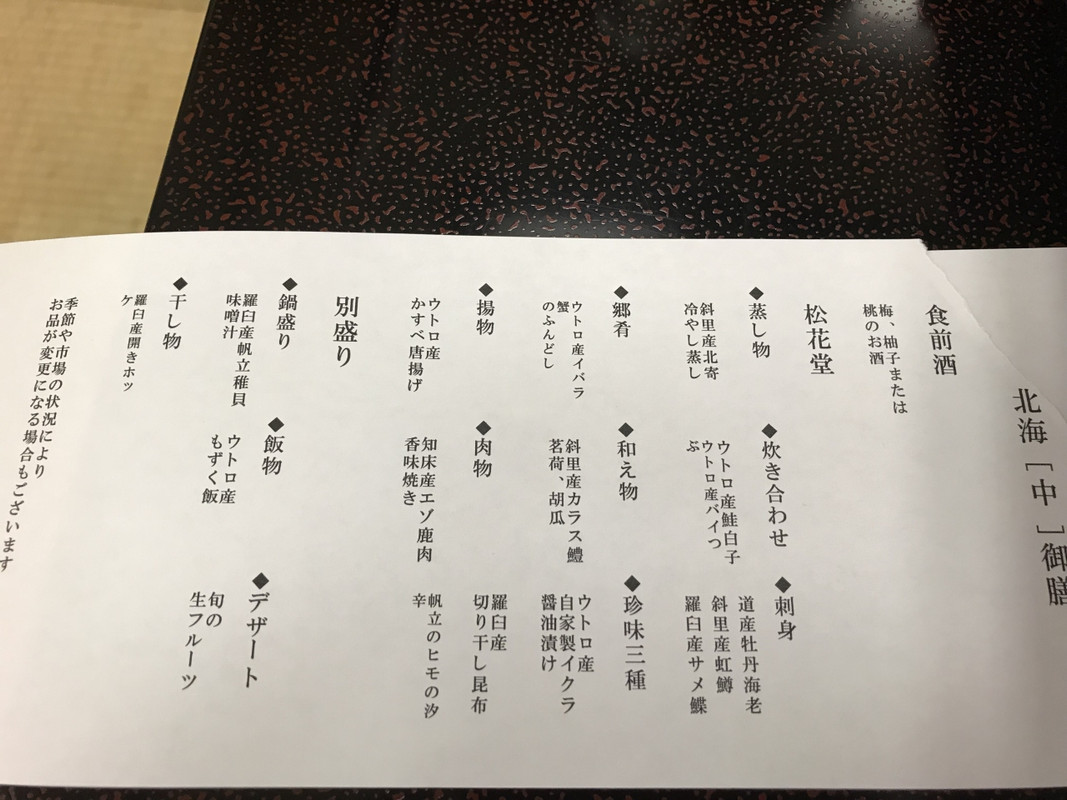 北海［中］御膳
食前酒
梅、柚子または
桃のお酒
松花堂
◆蒸し物
斜里産北寄
冷やし蒸し
◆炊き合わせ
ウトロ産鮭白子
ウトロ産バイつ
ぶ
◆刺身
道産牡丹海老
斜里産虹鱒
羅臼産サメ鰈
◆郷肴
ウトロ産イバラ
蟹
のふんどし
◆和え物
斜里産カラス鱧
茗荷、胡瓜
◆珍味三種
ウトロ産
自家製イクラ
醤油漬け
羅臼産
切り干し昆布
帆立のヒモの汐
辛
◆揚物
ウトロ産
かすべ唐揚げ
◆肉物
知床産エゾ鹿肉
香味焼き
別盛り
◆鍋盛り
羅臼産帆立稚貝
味噌汁
◆飯物
ウトロ産
もずく飯
◆デザート
旬の
生フルーツ
◆干し物
羅臼産開きホッ
ケ
季節や市場の状況により
お品が変更になる場合もございます